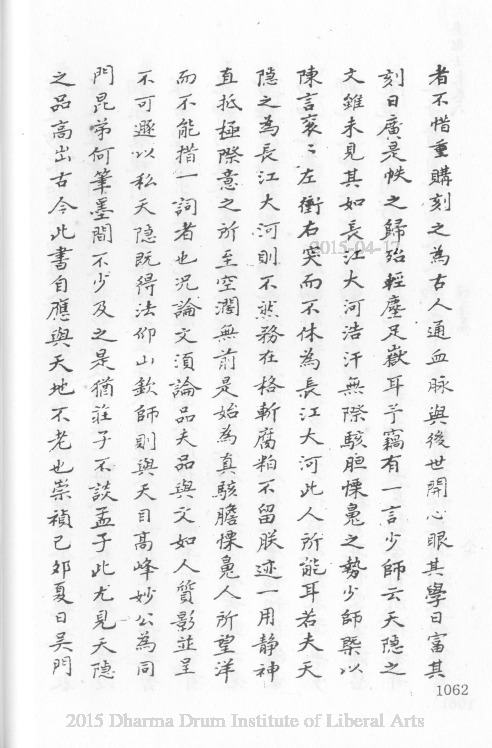 者不惜重購刻之為古人通血脉與後世開心眼其學日富其
刻日廣是帙之歸殆輕塵足嶽耳予竊有一言少師云天隱之
文雖未見其如長江大河浩汗無際駭胆慄䰟之勢少師槩以
陳言衮〻左衝右突而不休為長江大河此人所能耳若夫天
隱之為長江大河則不然務在格斬腐粕不留朕迹一用静神
直抵極際意之所至空濶無前是始為真駭膽慄䰟人所望洋
而不能措一詞者也况論文須論品夫品與文如人質影並呈
不可遯以私天隱既得法仰山欽師則與天目高峰妙公為同
門昆弟何筆墨間不少及之是猶莊子不談孟子此尤見天隱
之品高出古今此書自應與天地不老也崇禎己夘夏日吳門
1062
2015-04-17
2015 Dharma Drum Institute of Liberal Arts